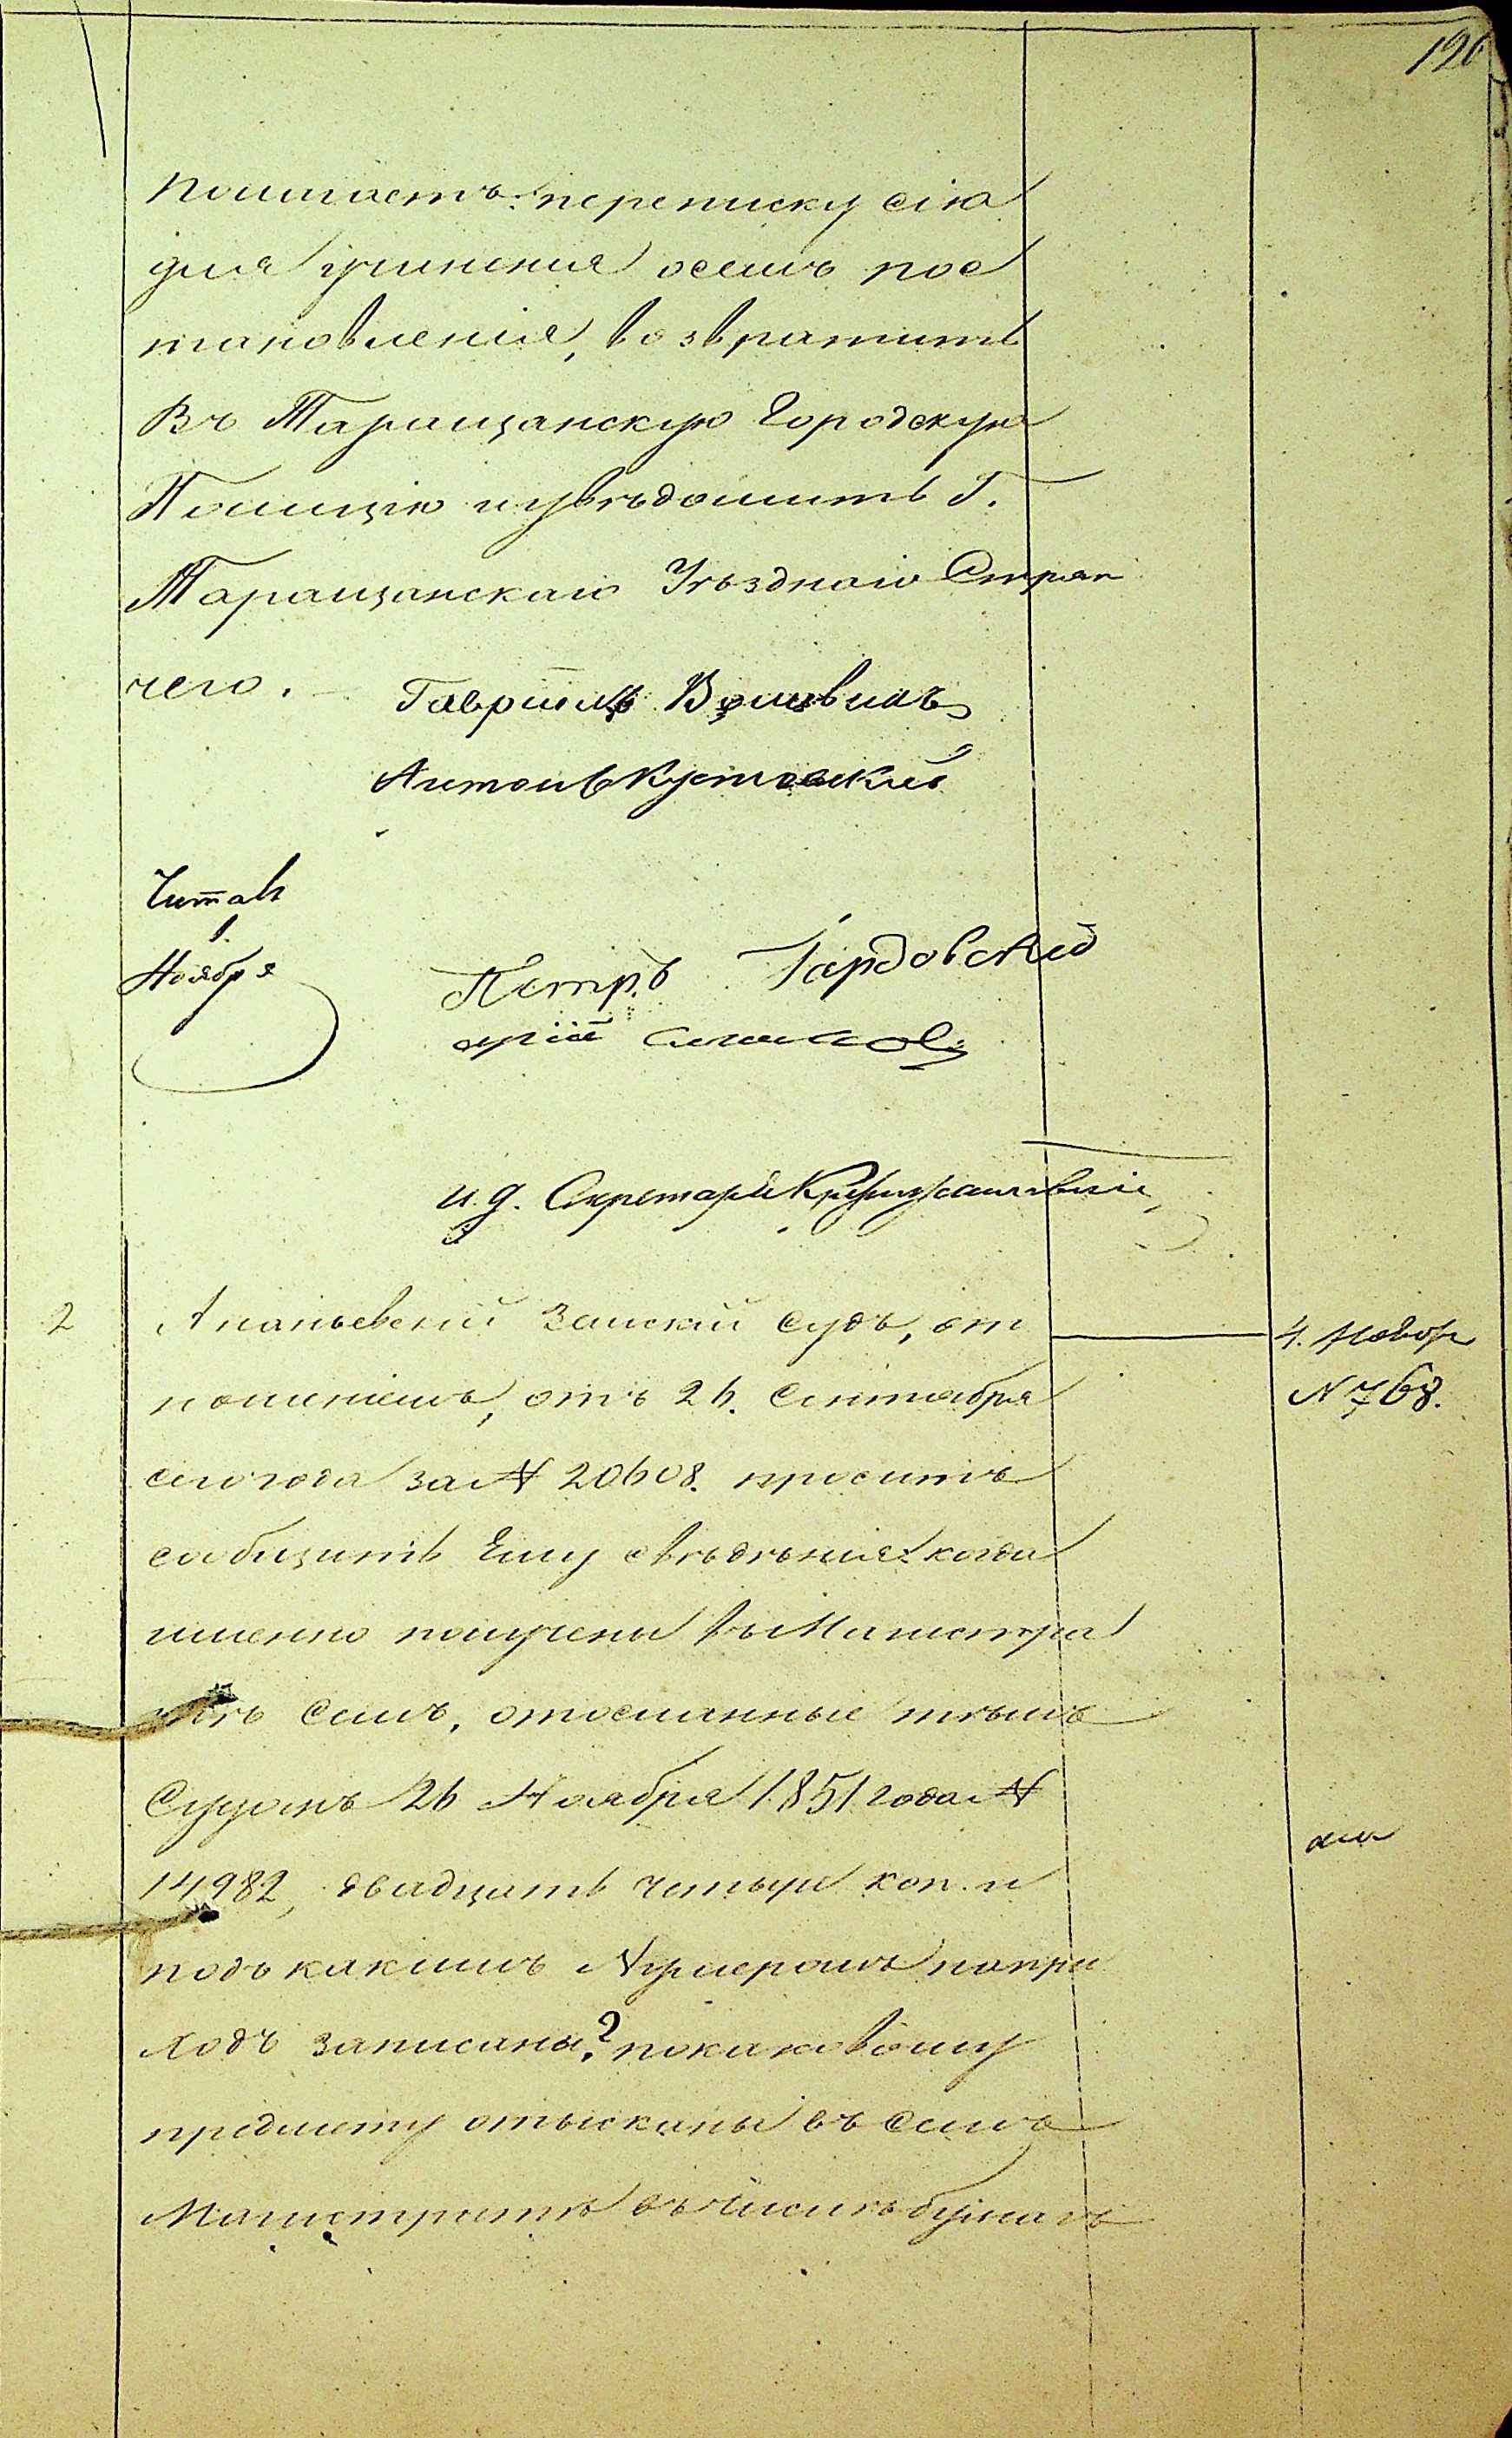 126
полагаетъ: переписку сію
для учиненія осемъ пос
тановленія, возвратить
Въ Таращанскую Городскую
Полицію и увѣдомить Г.
Таращанскаго Уѣзднаго Стряп
чего.
Гавріилъ
Антонъ Кустовскій
Читалъ
1.
Ноября
Петръ Гардовскій
и.д. Секретаря
2
Ананьевскій Земскій Судъ, от
ношеніемъ, отъ 26. Сентября
сего года за № 20608. проситъ
сообщить Ему свѣдѣніе: когда
именно получены въ Магистра
тѣ семъ, отосланные тѣмъ
Судомъ 26 Ноября 1851 года №
14982, двадцать четыре коп. и
подъ какимъ Нумеромъ напри
ходъ записаны? покаковому
предмету отысканы въ семъ
Магистратѣ въ числѣ бумагъ
4. Ноября
№ 768.